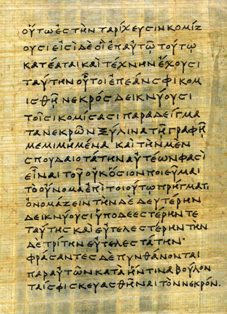 οὕτω ἐς τὴν ταρίχευσιν κομίζ
ουσι εἰσὶ δὲ οἳ ἐπ αὐτῷ τούτῳ
κατέαται καὶ τέχνην ἔχουσι
ταύτην οὗτοι ἐπεάν σφι κομ
ισθῇ νεκρὸς δεικνύουσι
τοῖσι κομίσασι παραδείγμα
τα νεκρῶν ξύλινα τῇ γραφῇ
μεμιμημένα καὶ τὴν μὲν
σπουδαιοτάτην αὐτέων φασὶ
εἶναι τοῦ οὐκ ὅσιον ποιεῦμαι
τὸ οὔνομα ἐπὶ τοιούτῳ πρήγματι
ὀνομάζειν τὴν δὲ δευτέρην
δεικνύουσι ὑποδεεστέρην τε
ταύτης καὶ εὐτελεστέρην τὴν
δὲ τρίτην εὐτελεστάτην·
φράσαντες δὲ πυνθάνονται
παρ αὐτῶν κατὰ ἥντινα βούλον
ταί σφι σκευασθῆναι τὸν νεκρόν.